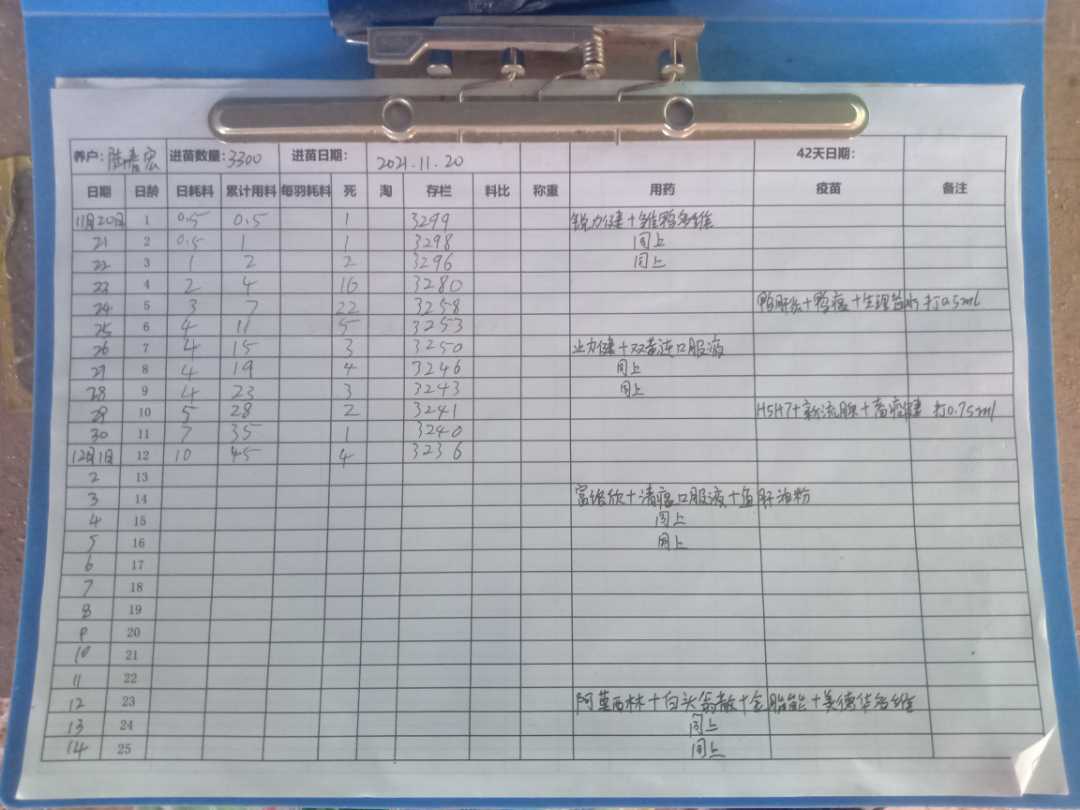 养户: 陆彥宏 进苗数量: 3300 进苗日期: 2021.11.20 42天日期:
日期 日龄 日耗料 累计用料 每羽耗料 死 淘 存栏 料比 称重 用药 疫苗 备注
11月20日 1 0.5 0.5 1 3299 锐力健+雏鸭多维
21 2 0.5 1 1 3298 同上
22 3 1 2 2 3296 同上
23 4 2 4 16 3280
24 5 3 7 22 3258 鸭肝炎+鸭瘟+生理盐水 打0.5ml
25 6 4 11 5 3253
26 7 4 15 3 3250 业力健+双黄连口服液
27 8 4 19 4 3246 同上
28 9 4 23 3 3243 同上
29 10 5 28 2 3241 H5H7+新流腺+ 打0.75ml
30 11 7 35 1 3240
12月1日 12 10 45 4 3236
2 13
3 14 +清瘟口服液+鱼肝油粉
4 15 同上
5 16 同上
6 17
7 18
8 19
9 20
10 21
11 22
12 23 阿莫西林+白头翁散++美德华多维
13 24 同上
14 25 同上